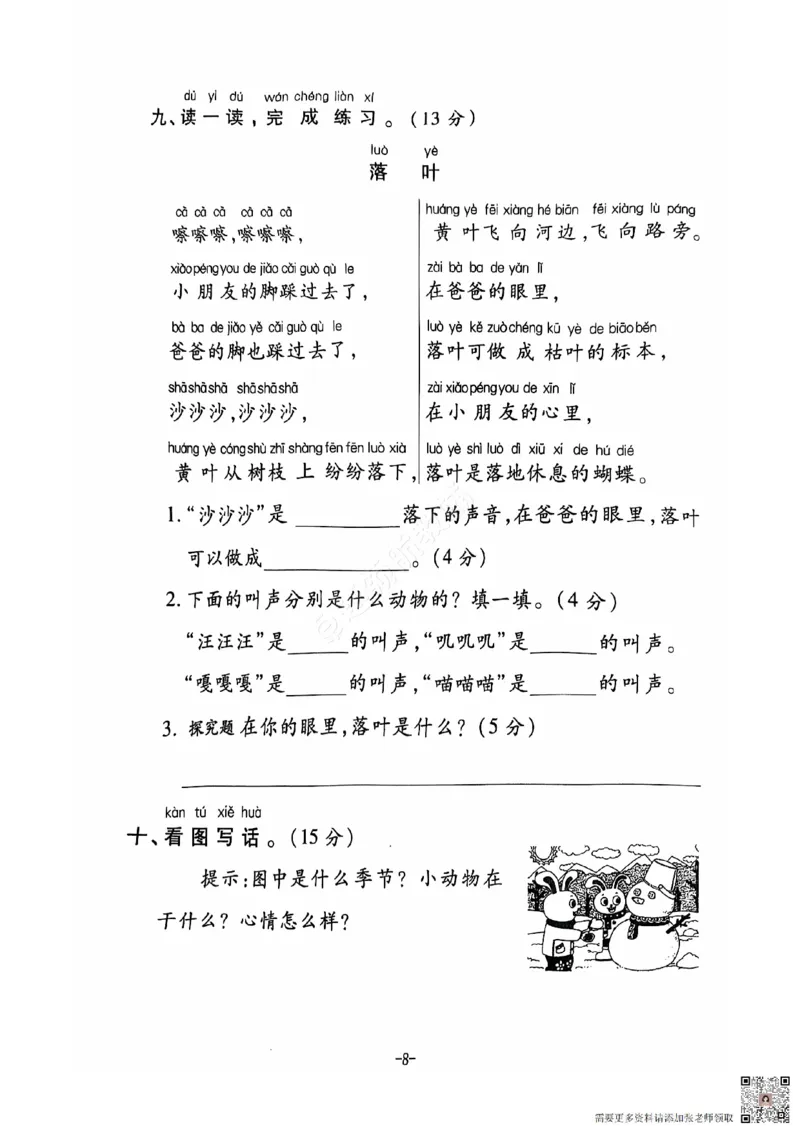 dú yì dú wán chéng liàn xí
九、读一读，完成练习。(13分)
luò yè
落叶
cā cā cā cā cā cā
嚓嚓嚓,嚓嚓嚓,
xiǎo péng you de jiǎo cǎi guò qù le
小朋友的脚踩过去了,
bà ba de jiǎo yě cǎi guò qù le
爸爸的脚也踩过去了,
shā shā shā shā shā shā
沙沙沙,沙沙沙,
huáng yè cóng shù zhī shàng fēn fēn luò xià
黄叶从树枝上纷纷落下,
huáng yè fēi xiàng hé biān fēi xiàng lù páng
黄叶飞向河边,飞向路旁。
zài bà ba de yǎn lǐ
在爸爸的眼里,
luò yè kě zuò chéng kū yè de biāo běn
落叶可做成枯叶的标本,
zài xiǎo péng you de xīn lǐ
在小朋友的心里,
luò yè shì luò dì xiū xi de hú dié
落叶是落地休息的蝴蝶。
1.“沙沙沙”是________落下的声音,在爸爸的眼里,落叶
可以做成____________。(4分)
2.下面的叫声分别是什么动物的？填一填。(4分)
“汪汪汪”是_____的叫声,“叽叽叽”是_____的叫声。
“嘎嘎嘎”是_____的叫声,“喵喵喵”是_____的叫声。
3. 探究题 在你的眼里,落叶是什么？(5分)
kàn tú xiě huà
十、看图写话。(15分)
提示:图中是什么季节？小动物在
干什么？心情怎么样？
-8-
需要更多资料请添加张老师领取